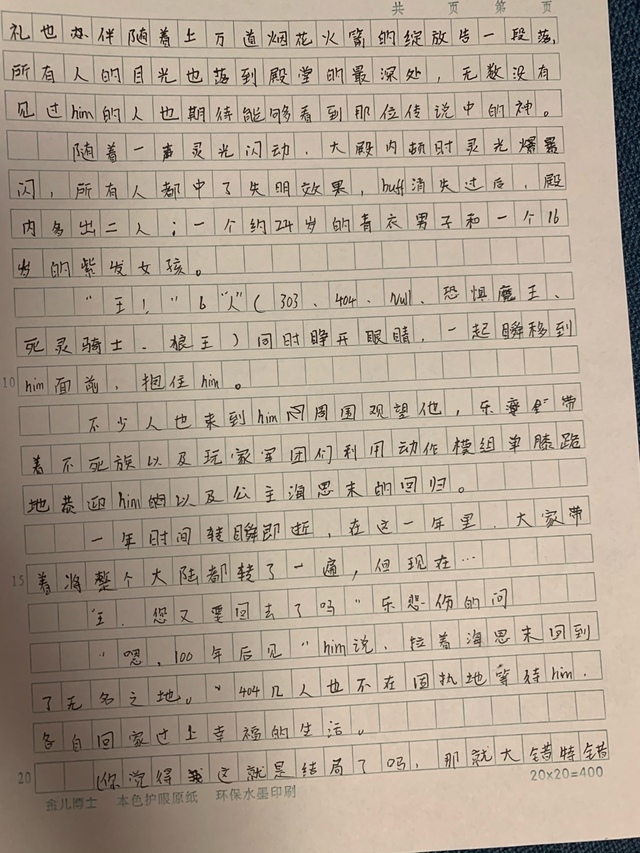 共 页 第 页
礼也伴随着上万道烟花火箭的绽放告一段落,
所有人的目光也落到殿堂的最深处，无数没有
见过him的人也期待能够看到那位传说中的神。
随着一声灵光闪动，大殿内顿时灵光爆
闪，所有人都中了失明效果，buff消失过后，殿
内多出二人；一个约24岁的青衣男子和一个16
岁的紫发女孩。
“王！”6“人”（303、404、Null、恐惧魔王、
死灵骑士、狼王）同时睁开眼睛，一起瞬移到
10 him面前，抱住him。
不少人也来到him周围观望他，乐带
着不死族以及玩家军团们利用动作模组单膝跪
地恭迎him的以及公主海思末的回归。
一年时间转瞬即逝，在这一年里，大家带
15 着将整个大陆都转了一遍，但现在…
“王，您又要回去了吗”乐悲伤的问
“嗯，100年后见”him说，拉着海思末回到
了无名之地。“404几人也不在固执地等待him.
各自回家过上幸福的生活。
20 （你觉得这就是结局了吗，那就大错特错
20×20=400
金儿博士 本色护眼原纸 环保水墨印刷